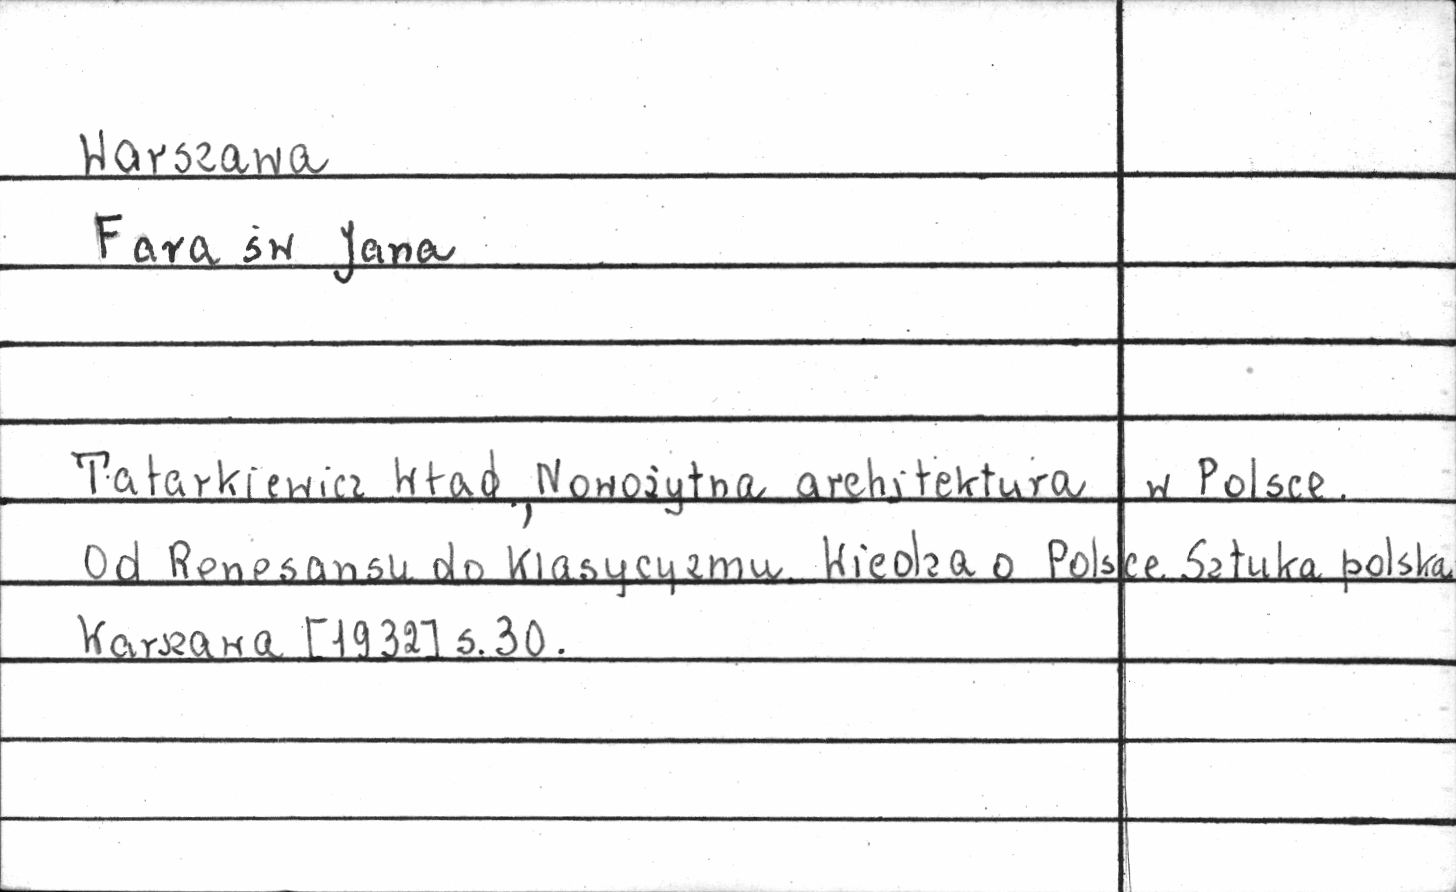 Warszawa
Fara św Jana
Tatarkiewicz Wład, Nowożytna architektura w Polsce.
Od Renesansu do Klasycyzmu. Wiedza o Polsce. Sztuka polska
Warszawa [1932] s. 30.